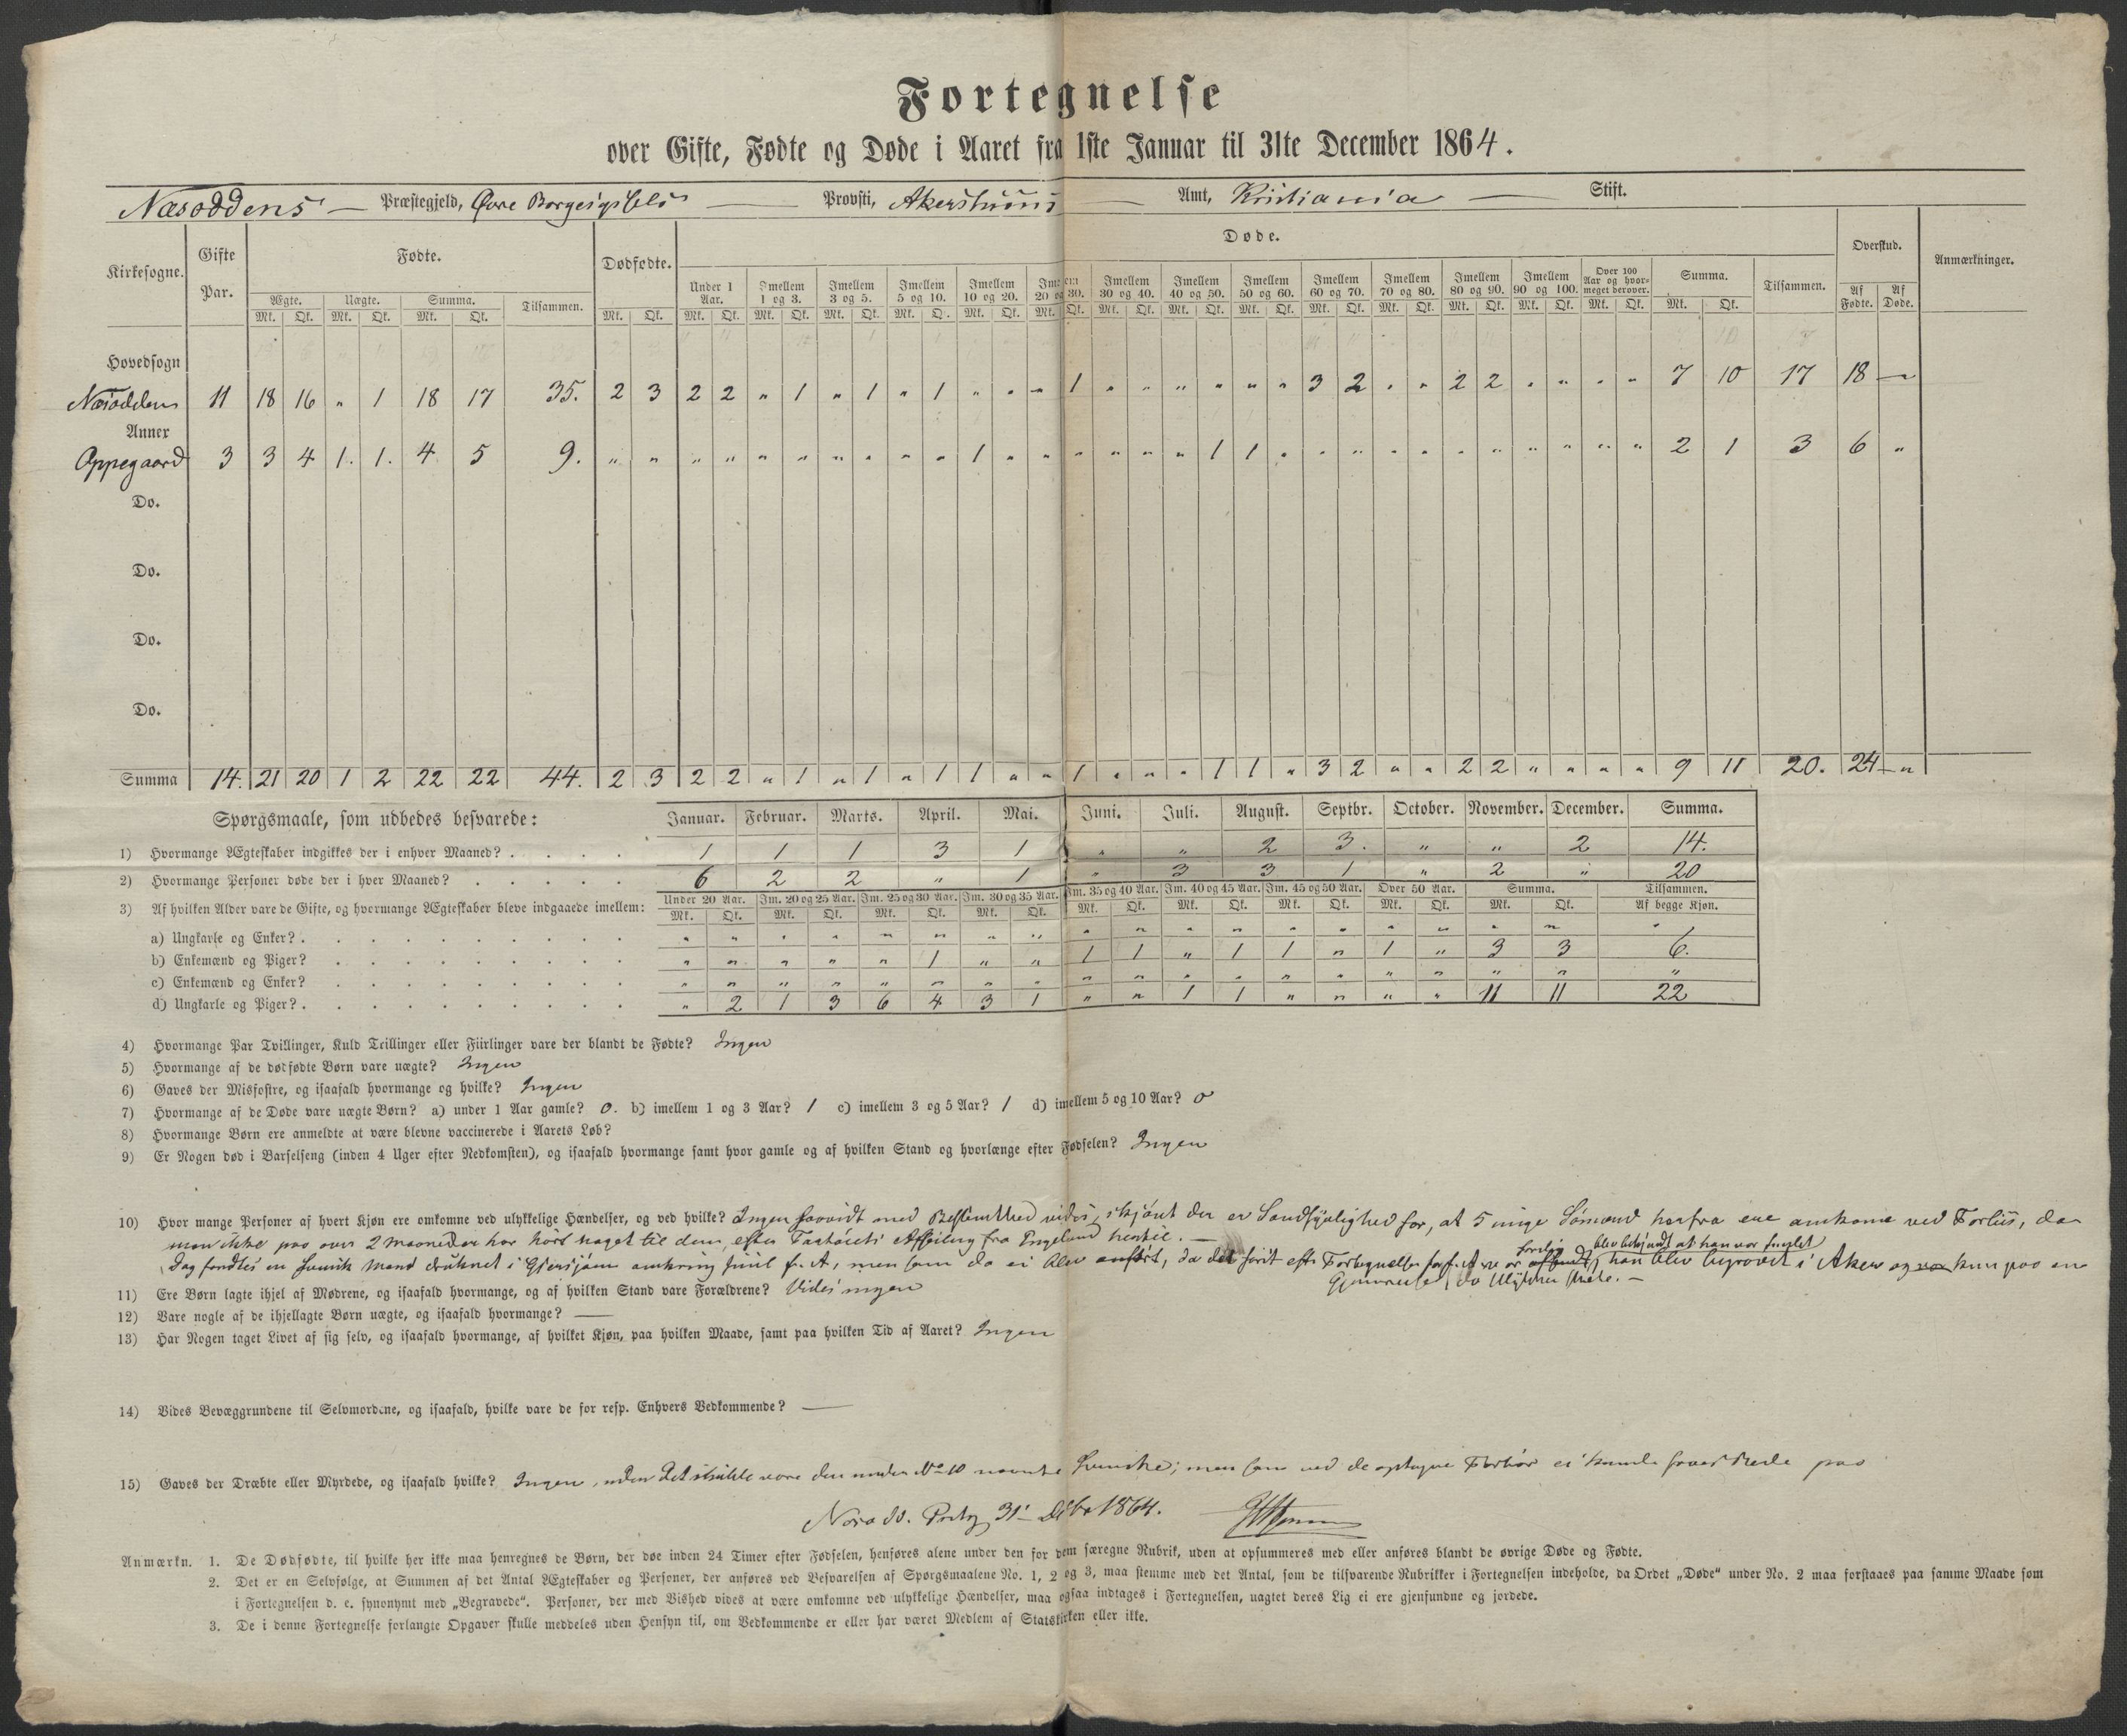 Fortegnelse
over Gifte, Fødte og Døde i Aaret fra 1ste Januar til 31te December 1864.
Næsoddens — Præstegjeld, Øvre Borgesyssels — Provsti, Akershuus — Amt, Kristiania — Stift.
Kirkesogne. Gifte Par. Fødte. Dødfødte. Døde. Overskud. Anmærkninger.
Ægte. Uægte. Summa. Tilsammen. Under 1 Aar. Imellem 1 og 3. Imellem 3 og 5. Imellem 5 og 10. Imellem 10 og 20. Imellem 20 og 30. Imellem 30 og 40. Imellem 40 og 50. Imellem 50 og 60. Imellem 60 og 70. Imellem 70 og 80. Imellem 80 og 90. Imellem 90 og 100. Over 100 Aar og hvormeget derover. Summa. Tilsammen. Af Fødte. Af Døde.
Mk. Qk. Mk. Qk. Mk. Qk. Mk. Qk. Mk. Qk. Mk. Qk. Mk. Qk. Mk. Qk. Mk. Qk. Mk. Qk. Mk. Qk. Mk. Qk. Mk. Qk. Mk. Qk. Mk. Qk. Mk. Qk. Mk. Qk. Mk. Qk. Mk. Qk.
Hovedsogn
Næsodden 11 18 16 " 1 18 17 35. 2 3 2 2 " 1 " 1 " 1 " " " 1 " " " " " " 3 2 " " 2 2 " " " " 7 10 17 18 —
Anner
Oppegaard 3 3 4 1. 1. 4 5 9. " " " " " " " " " " 1 " " " " " " 1 1 " " " " " " " " " " " 2 1 3 6 "
Do.
Do.
Do.
Do.
Summa 14. 21 20 1 2 22 22 44. 2 3 2 2 " 1 " 1 " 1 1 " " 1 " " " 1 1 " 3 2 " " 2 2 " " " " 9 11 20. 24 — "
Spørgsmaale, som udbedes besvarede: Januar. Februar. Marts. April. Mai. Juni. Juli. August. Septbr. October. November. December. Summa.
1) Hvormange Ægteskaber indgikkes der i enhver Maaned? 1 1 1 3 1 " " 2 3. " " 2 14.
2) Hvormange Personer døde der i hver Maaned? 6 2 2 " 1 " 3 3 1 " 2 " 20
3) Af hvilken Alder vare de Gifte, og hvormange Ægteskaber bleve indgaaede imellem: Under 20 Aar. Im. 20 og 25 Aar. Im. 25 og 30 Aar. Im. 30 og 35 Aar. Im. 35 og 40 Aar. Im. 40 og 45 Aar. Im. 45 og 50 Aar. Over 50 Aar. Summa. Tilsammen.
Mk. Qk. Mk. Qk. Mk. Qk. Mk. Qk. Mk. Qk. Mk. Qk. Mk. Qk. Mk. Qk. Mk. Qk. Af begge Kjøn.
a) Ungkarle og Enker? " " " " " " " " " " " " " " " " " " "
b) Enkemænd og Piger? " " " " " 1 " " 1 1 " 1 1 " 1 " 3 3 6.
c) Enkemænd og Enker? " " " " " " " " " " " " " " " " " " "
d) Ungkarle og Piger? " 2 1 3 6 4 3 1 " " 1 1 " " " " 11 11 22
4) Hvormange Par Tvillinger, Kuld Trillinger eller Fiirlinger vare der blandt de Fødte? Ingen
5) Hvormange af de dødfødte Børn vare uægte? Ingen
6) Gaves der Misfostre, og isaafald hvormange og hvilke? Ingen
7) Hvormange af de Døde vare uægte Børn? a) under 1 Aar gamle? 0. b) imellem 1 og 3 Aar? 1 c) imellem 3 og 5 Aar? 1 d) imellem 5 og 10 Aar? 0
8) Hvormange Børn ere anmeldte at være blevne vaccinerede i Aarets Løb?
9) Er Nogen død i Barselseng (inden 4 Uger efter Nedkomsten), og isaafald hvormange samt hvor gamle og af hvilken Stand og hvorlænge efter Fødselen? Ingen
10) Hvor mange Personer af hvert Kjøn ere omkomne ved ulykkelige Hændelser, og ved hvilke? Ingen saavidt med Bestemthed vides, skjønt der er Sandsynlighed for, at 5 unge Sømænd herfra ere omkomne ved Forliis, da
man ikke paa over 2 Maaneder har hørt noget til dem, efter Fartøiets Afseiling fra England hertil. —
Dag fandtes en Svensk Mand druknet i Gjersjøen omkring Juul f. A, men som da ei blev anført, da det først efter Fortegnelsen for f. A var blev bekjendt at han var fundet, han blev begravet i Aker og var kun paa en
Gjennemreise, da Ulykken skede. —
11) Ere Børn lagte ihjel af Mødrene, og isaafald hvormange, og af hvilken Stand vare Forældrene? Vides ingen
12) Vare nogle af de ihjellagte Børn uægte, og isaafald hvormange? —
13) Har Nogen taget Livet af sig selv, og isaafald hvormange, af hvilket Kjøn, paa hvilken Maade, samt paa hvilken Tid af Aaret? Ingen
14) Vides Bevæggrundene til Selvmordene, og isaafald, hvilke vare de for resp. Enhvers Vedkommende? —
15) Gaves der Dræbte eller Myrdede, og isaafald hvilke? Ingen, uden det skulde være den under No 10 nævnte Svenske; men som ved de optagne Forhør ei kunde faaes Rede paa
31 Dcbr 1864.
Anmærkn. 1. De Dødfødte, til hvilke her ikke maa henregnes de Børn, der døe inden 24 Timer efter Fødselen, henføres alene under den for dem særegne Rubrik, uden at opsummeres med eller anføres blandt de øvrige Døde og Fødte.
2. Det er en Selvfølge, at Summen af det Antal Ægteskaber og Personer, der anføres ved Besvarelsen af Spørgsmaalene No. 1, 2 og 3, maa stemme med det Antal, som de tilsvarende Rubrikker i Fortegnelsen indeholde, da Ordet „Døde“ under No. 2 maa forstaaes paa samme Maade som
i Fortegnelsen d. e. synonymt med „Begravede“. Personer, der med Vished vides at være omkomne ved ulykkelige Hændelser, maa ogsaa indtages i Fortegnelsen, uagtet deres Lig ei ere gjenfundne og jordede.
3. De i denne Fortegnelse forlangte Opgaver skulle meddeles uden Hensyn til, om Vedkommende er eller har været Medlem af Statskirken eller ikke.